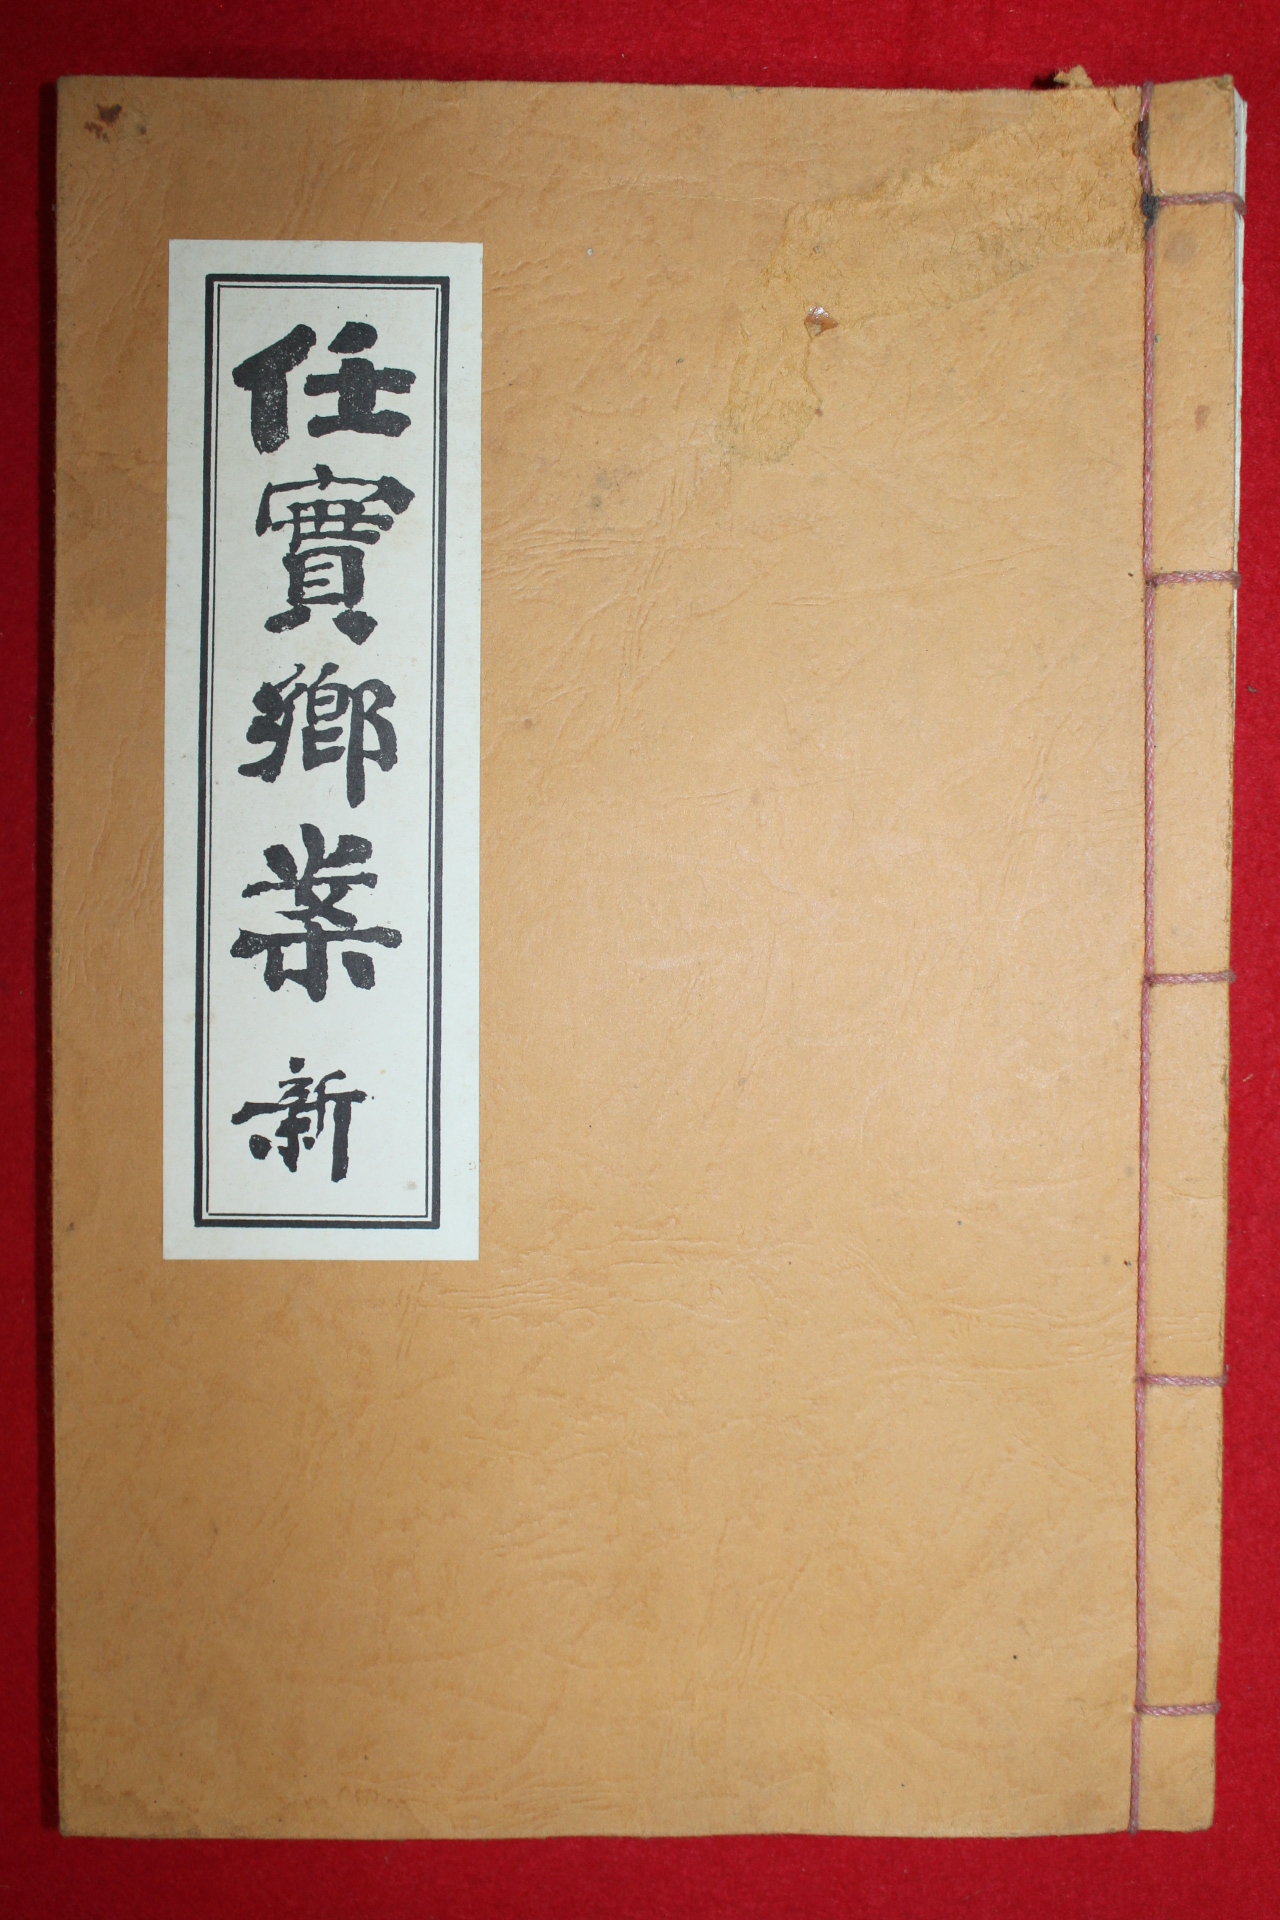 任實鄕案 新